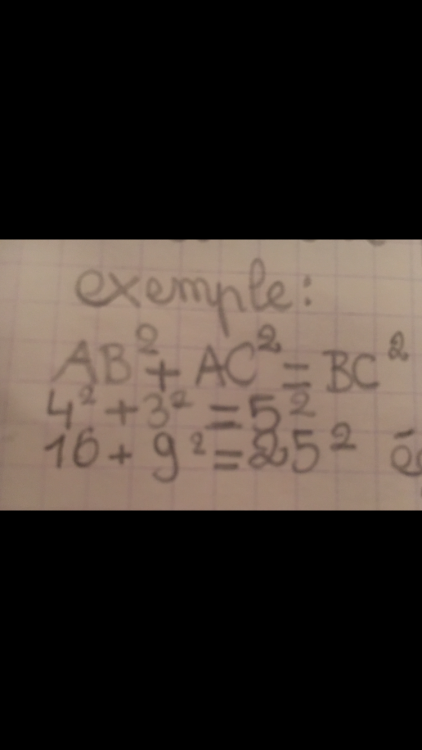 exemple:
AB² + AC² = BC²
4² + 3² = 5²
16 + 9² = 25²